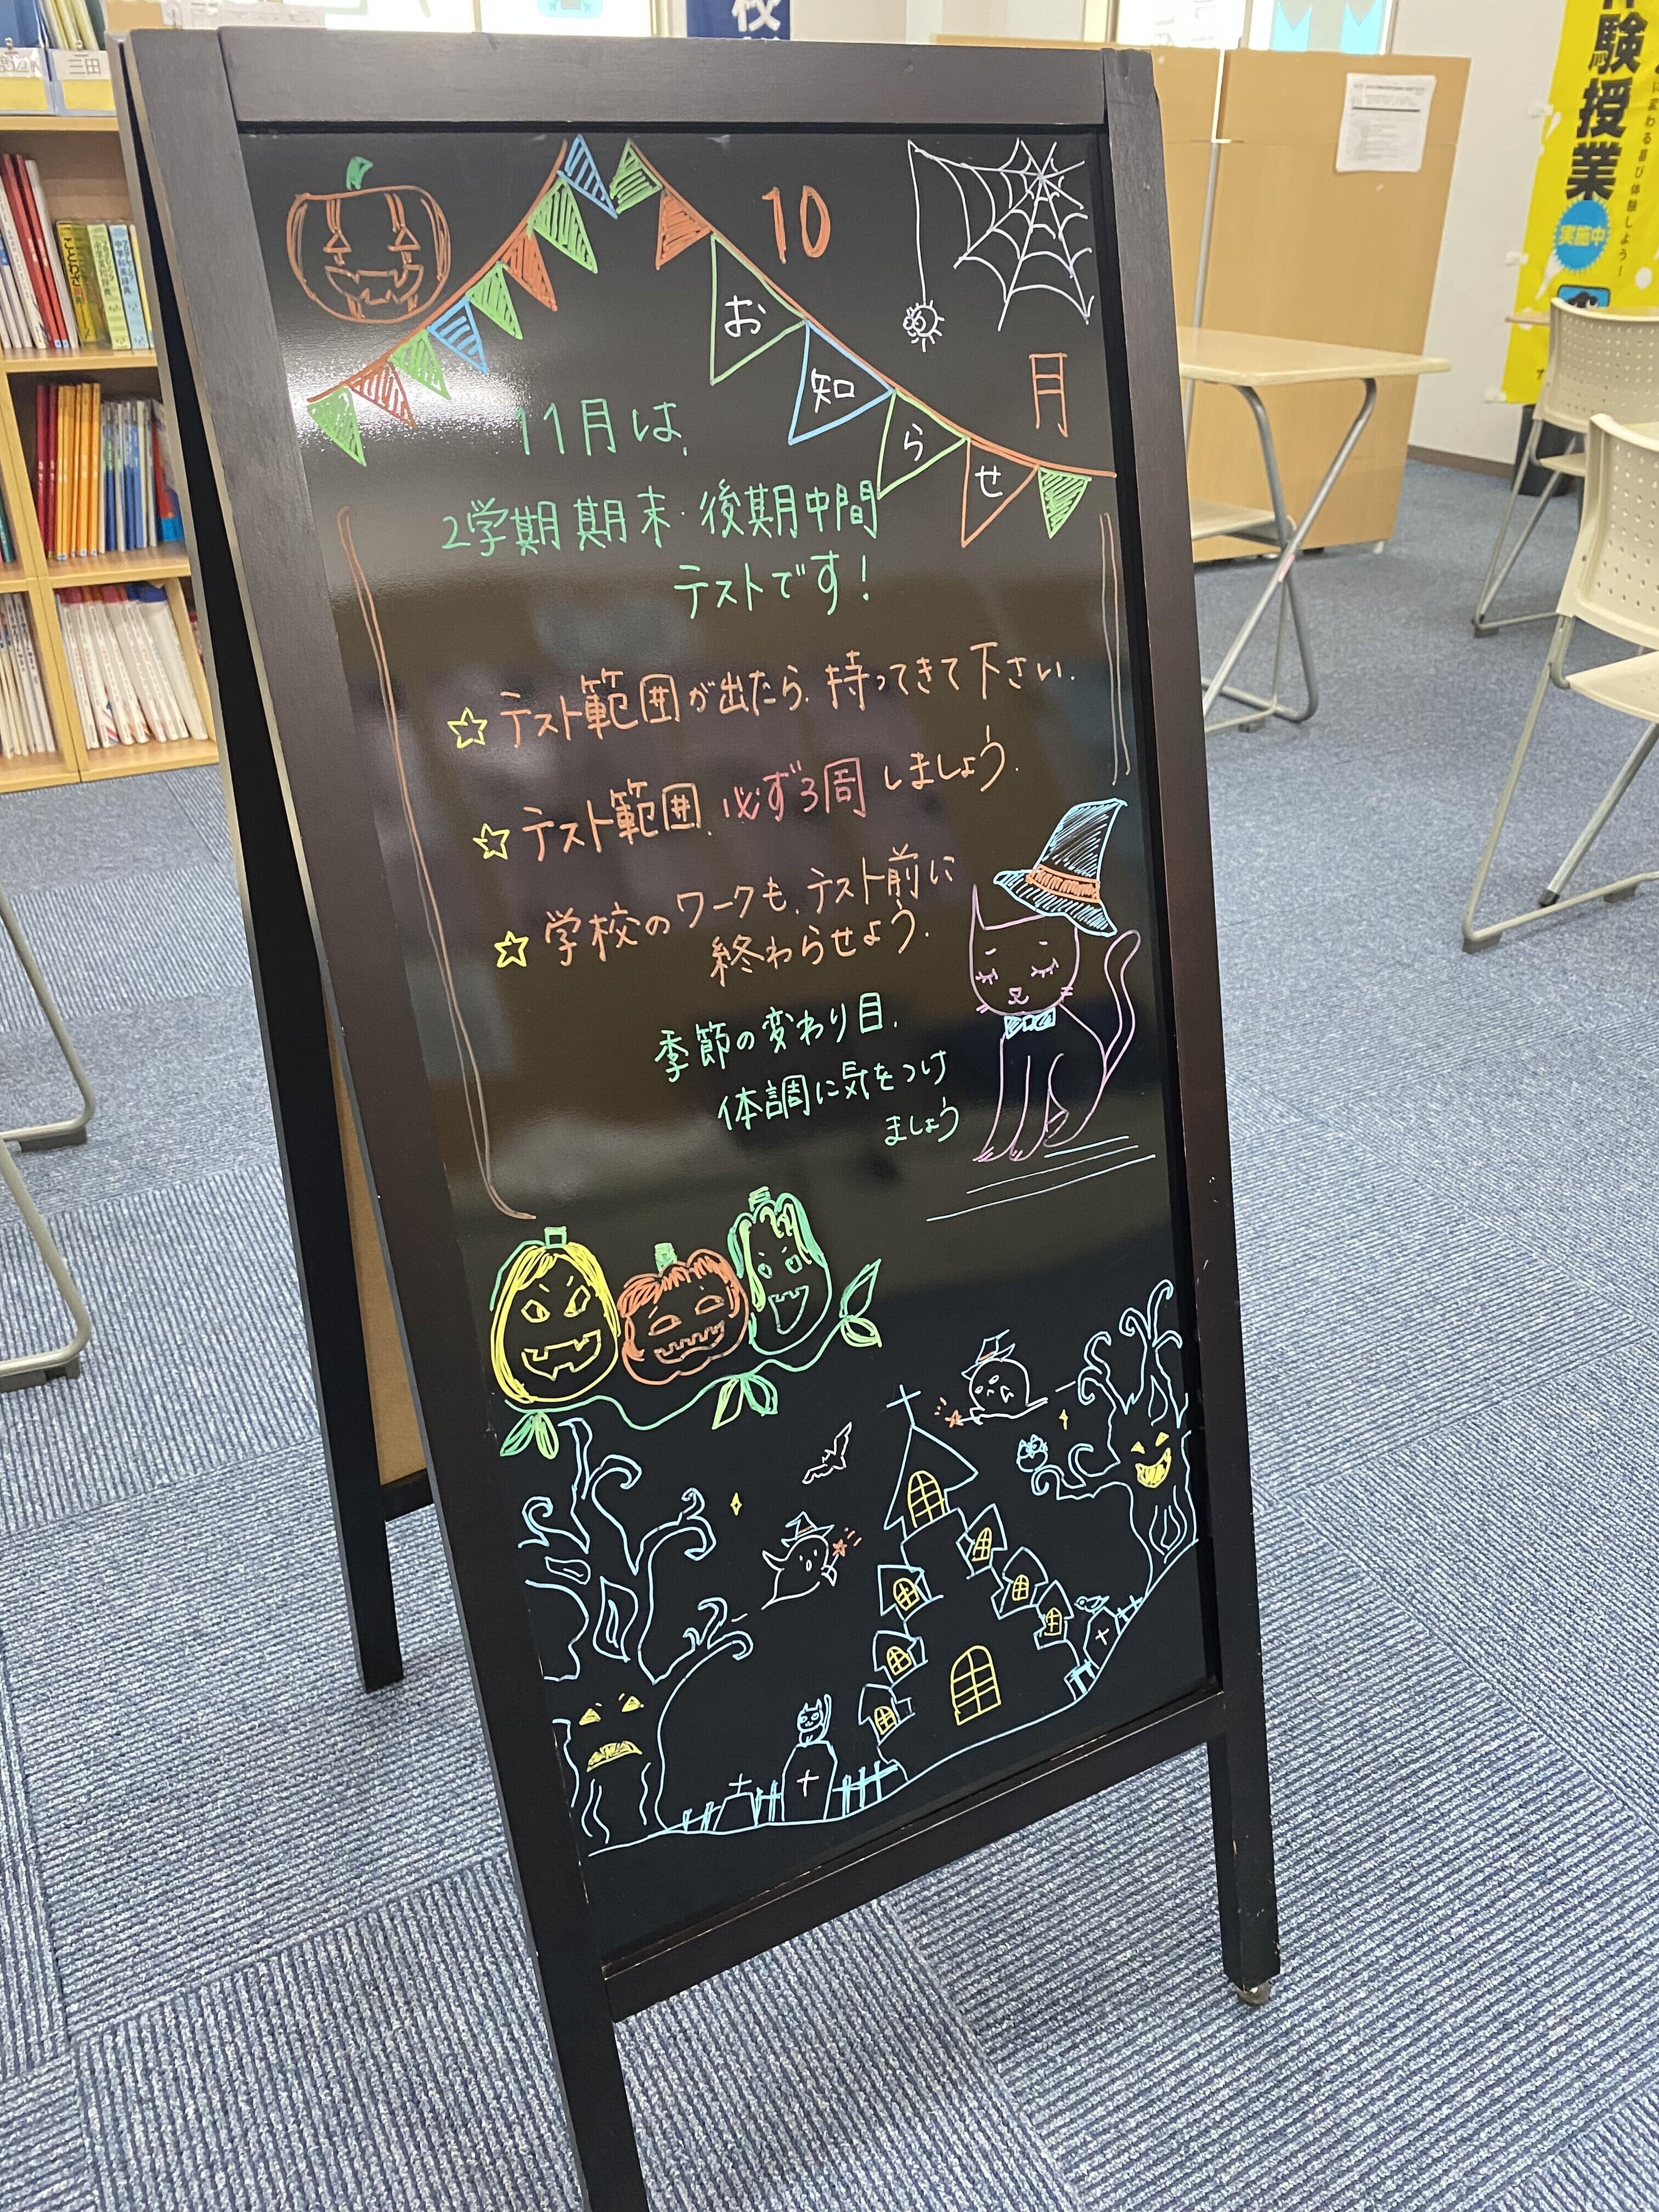 10
月
お知らせ
11月は、
2学期期末・後期中間
テストです!
☆テスト範囲が出たら、持ってきて下さい.
☆テスト範囲、必ず3周しましょう.
☆学校のワークも、テスト前に
終わらせよう.
季節の変わり目、
体調に気をつけ
ましょう
三田
校
験授業
実施中
に変わる喜び体験しよう!